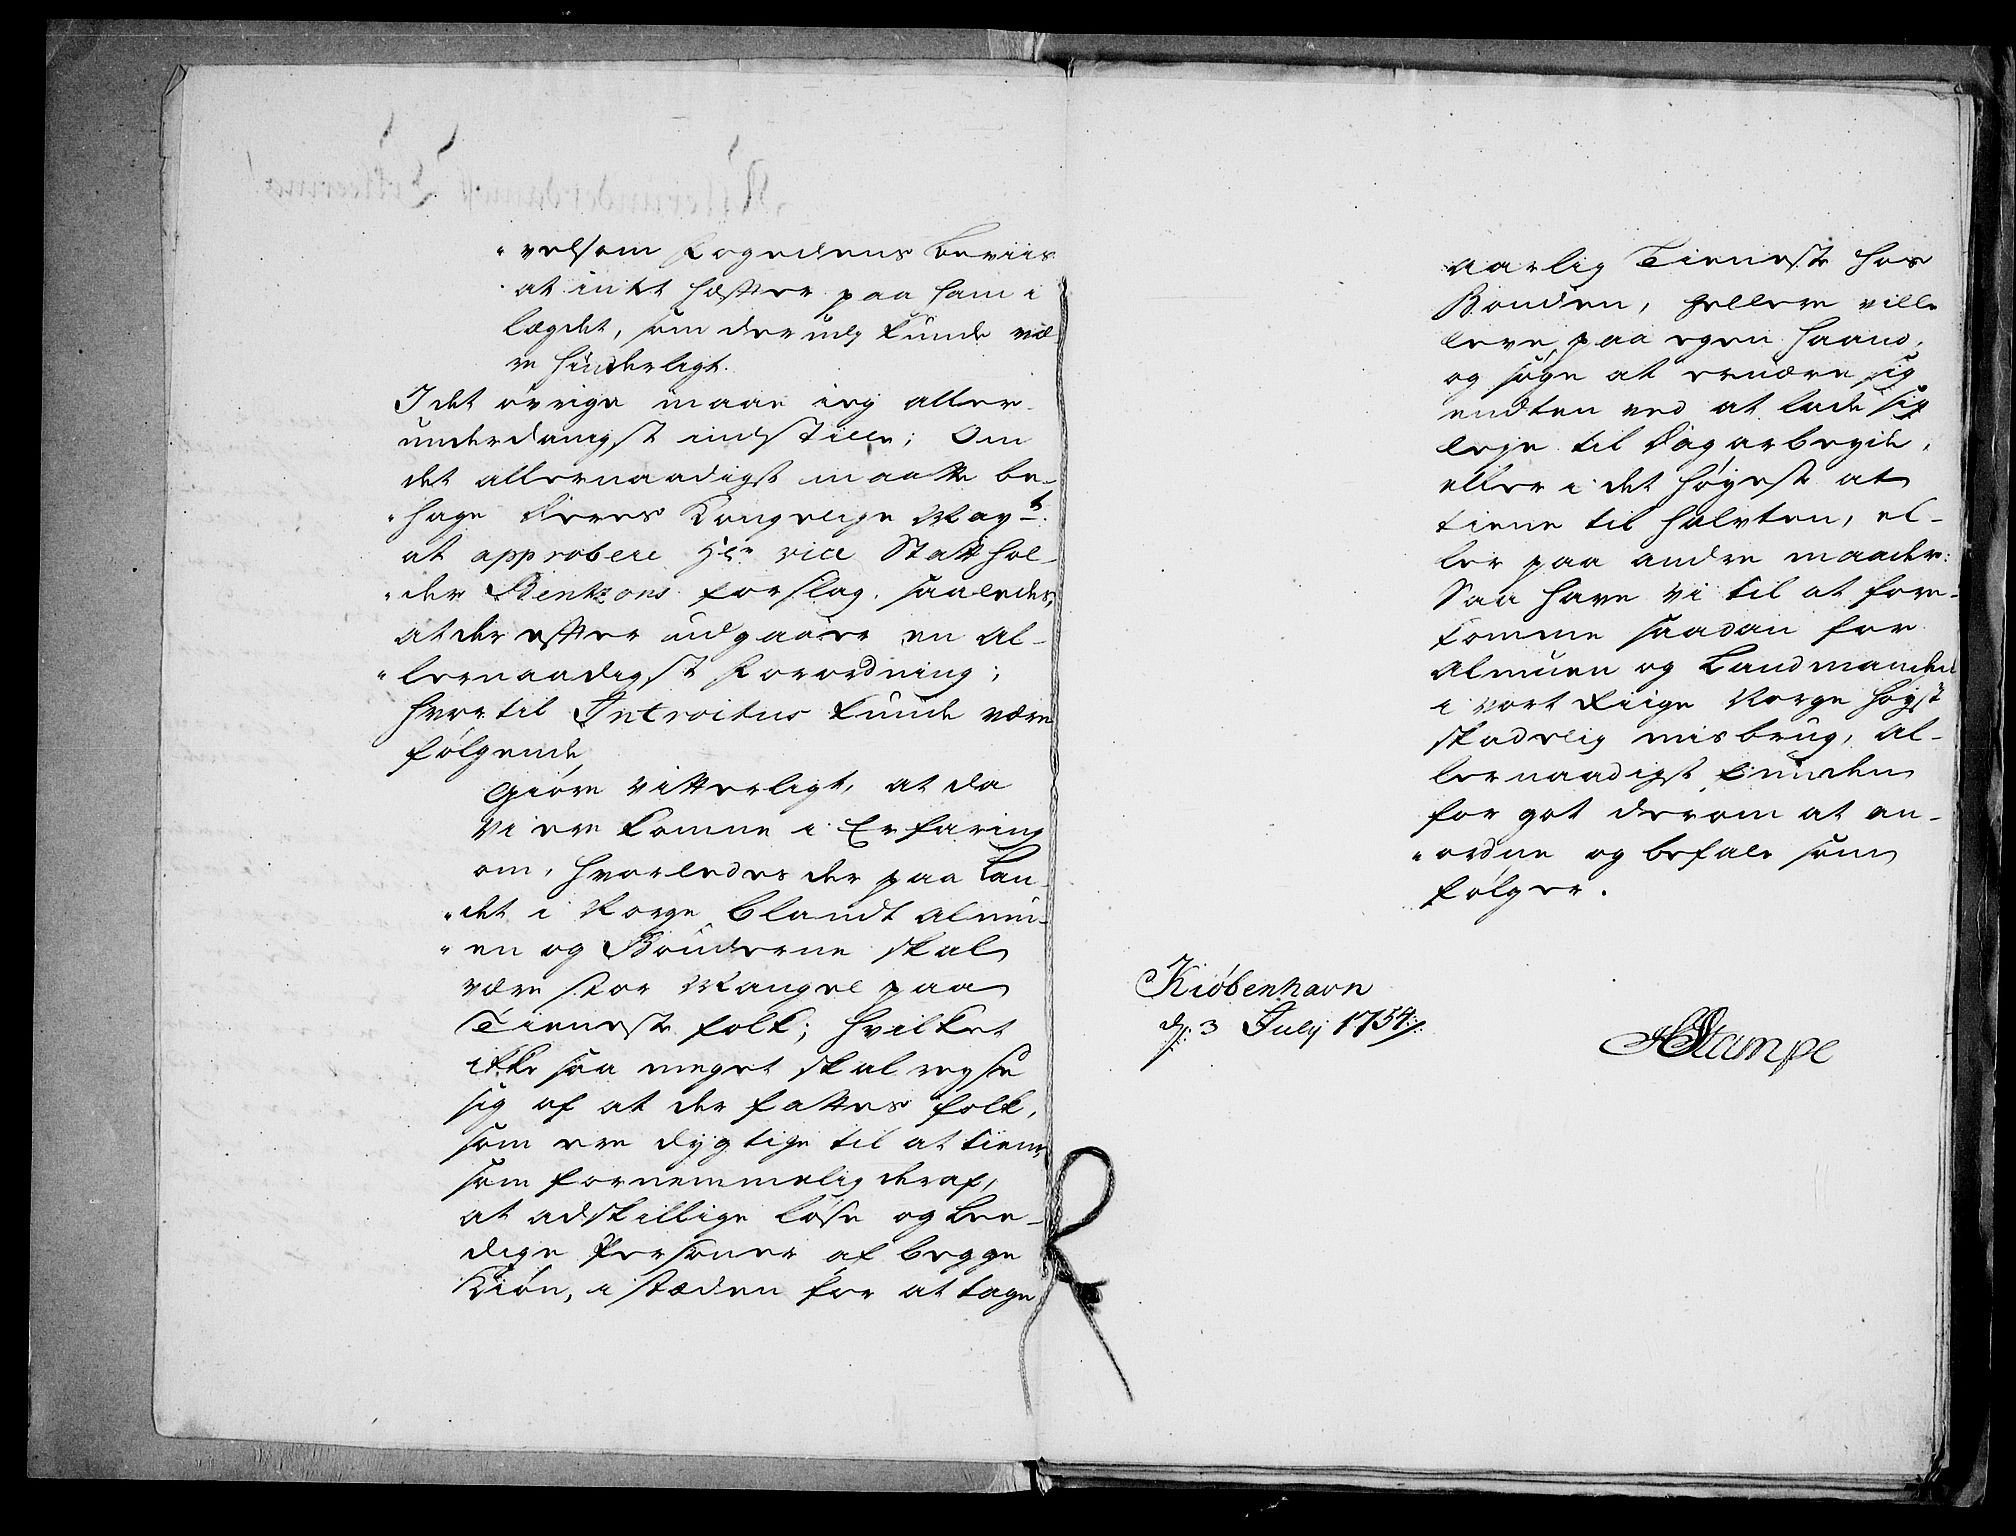 velsom Fogedens Beviis
at intet hæfter paa ham i
lægdet, som derudj kunde væ¬
re hinderligt.
I det övrige maae ieg aller¬
underdanigst indstille; Om
det allernaadigst maatte be¬
hage Deres Kongelige Mayt.
at approbere Hr vice Statthol¬
der Bentzons forslag, saaledes,
at der efter udgaaer en Al¬
lernaadigst Forordning;
hvortil Introitus kunde være
følgende,
Giöre vitterligt, at da
Vi ere komne i Erfaring
om, hvorledes der paa Lan¬
det i Norge blandt Almu¬
en og Bönderne skal
være stor Mangel paa
Tieneste folk; hvilket
ikke saa meget skal reyse
sig af at der fattes folk,
som ere dygtige til at tiene
som fornemmelig deraf,
at adskillige löse og Lee¬
dige Personer af begge
Kiön, i stæden for at tage
aarlig Tieneste hos
Bonden, hellere ville
leve paa egen haand,
og søge at ernære sig
endten ved at lade sig
leye til Dag arbeyde,
eller i det høyeste at
tiene til halvten, el¬
ler paa andre maader:
Saa have Vi til at fore¬
komme saadan for
Almuen og Landmanden
i vort Riige Norge høyst
skadelig misbrug, al¬
lernaadigst funden
for got derom at an¬
ordne og befale som
følger.
Kiöbenhavn
d. 3 July 1754
HStampe